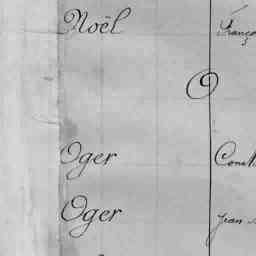 Noël Franço
O
Oger Const
Oger Jean